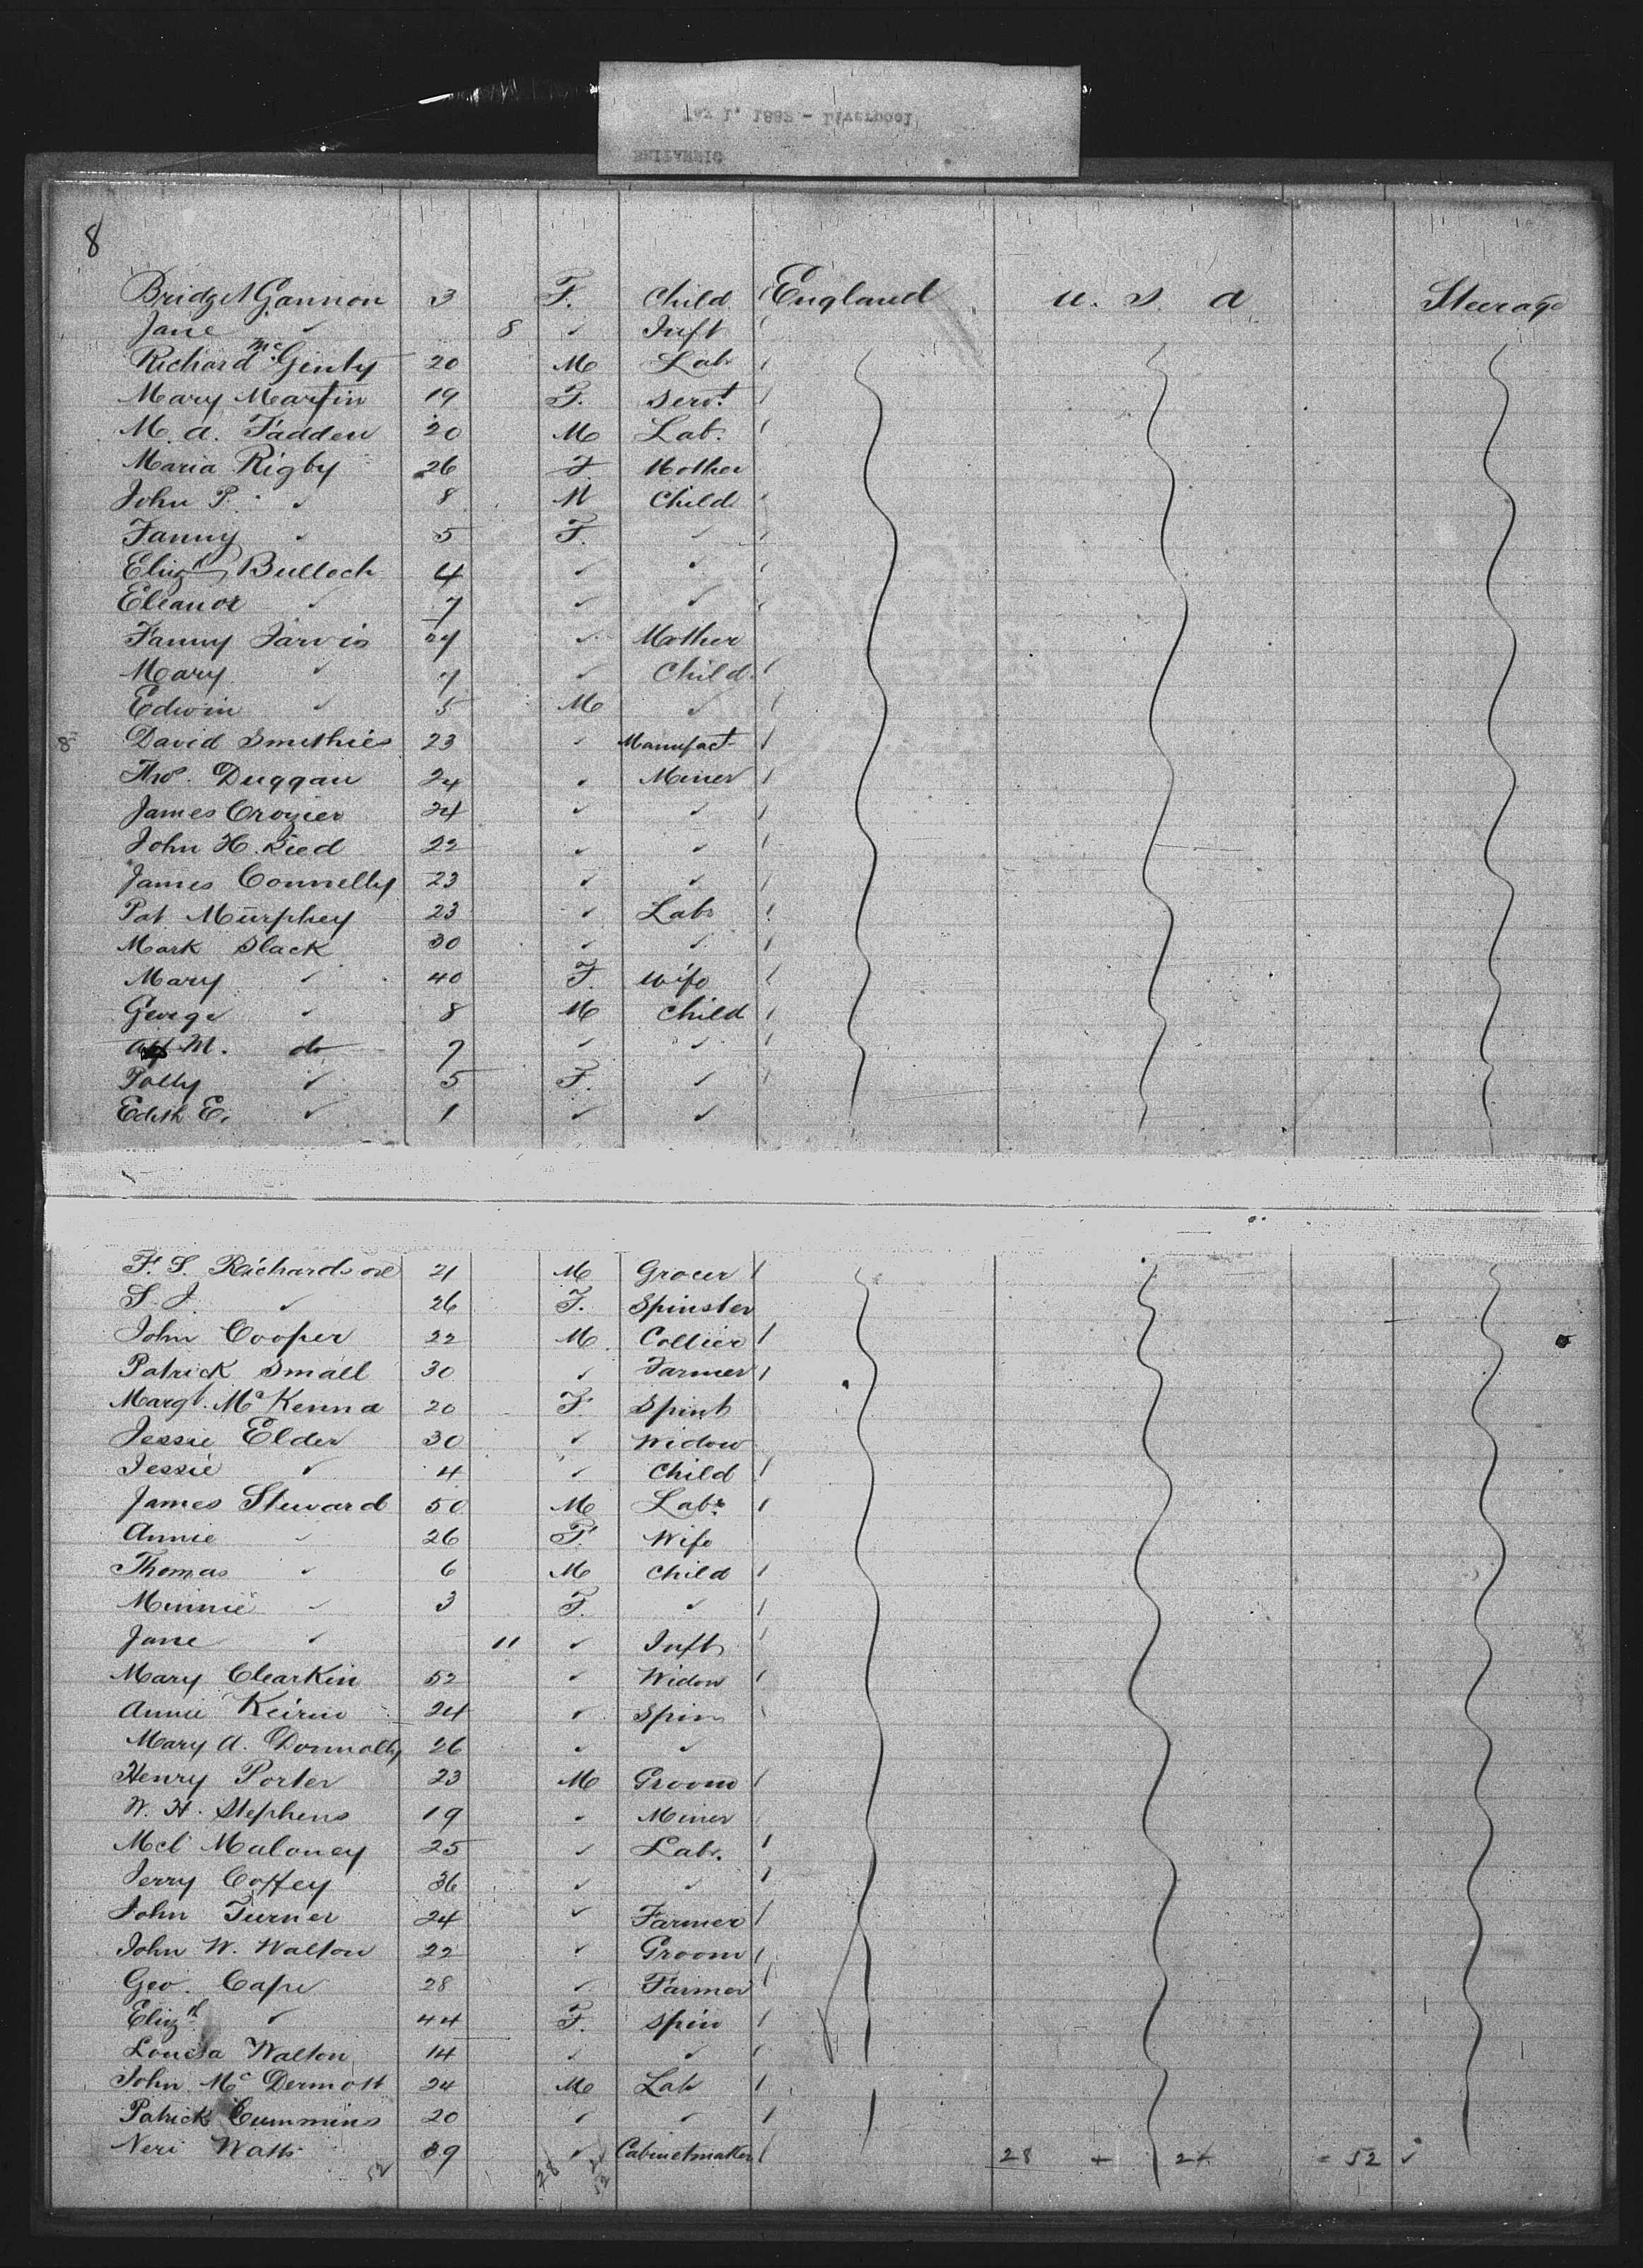 1. 1882 - Liverpool
BRITANNIC
8
Bridget Gannon 3 F. Child England U. S. A Steerage
Jane " 8 " Inft
Richard McGinty 20 M Lab
Mary Martin 19 F. Servt
M. A. Fadden 20 M Lab.
Maria Rigby 26 F Mother
John P. " 8 M Child
Fanny " 5 F. "
Elizth Bulloch 4 " "
Eleanor " 7 " "
Fanny Jarvis 27 " Mother
Mary " 7 " Child
Edwin " 5 M "
8 David Smithies 23 " Manufact
Thos. Duggan 24 " Miner
James Crozier 24 " "
John H. Ried 22 " "
James Connelly 23 " "
Pat Murphey 23 " Labr
Mark Slack 30 " "
Mary " 40 F. Wife
George " 8 M Child
M. do 7 " "
Polly " 5 F. "
Edith E. " 1 " "
F. S. Richardson 21 M Grocer
S. J. " 26 F. Spinster
John Cooper 22 M. Collier
Patrick Small 30 " Farmer
Margt. McKenna 20 F. Spinst
Jessie Elder 30 " Widow
Jessie " 4 " Child
James Steward 50 M Labr
Annie " 26 F. Wife
Thomas " 6 M Child
Minnie " 3 F. "
Jane " 11 " Inft
Mary Clearkin 52 " Widow
Annie Keirin 24 " Spin
Mary A. Donnolly 26 " "
Henry Porter 23 M Groom
W. H. Stephens 19 " Miner
Mcl Maloney 25 " Labr.
Jerry Coffey 36 " "
John Turner 24 " Farmer
John W. Walton 22 " Groom
Geo. Cape 28 " Farmer
Elizth " 44 F. Spin
Louisa Walton 14 " "
John McDermott 24 M Lab
Patrick Cummins 20 " "
Neri Watts 39 " Cabinetmaker
52 28 24 52 28 + 24 = 52